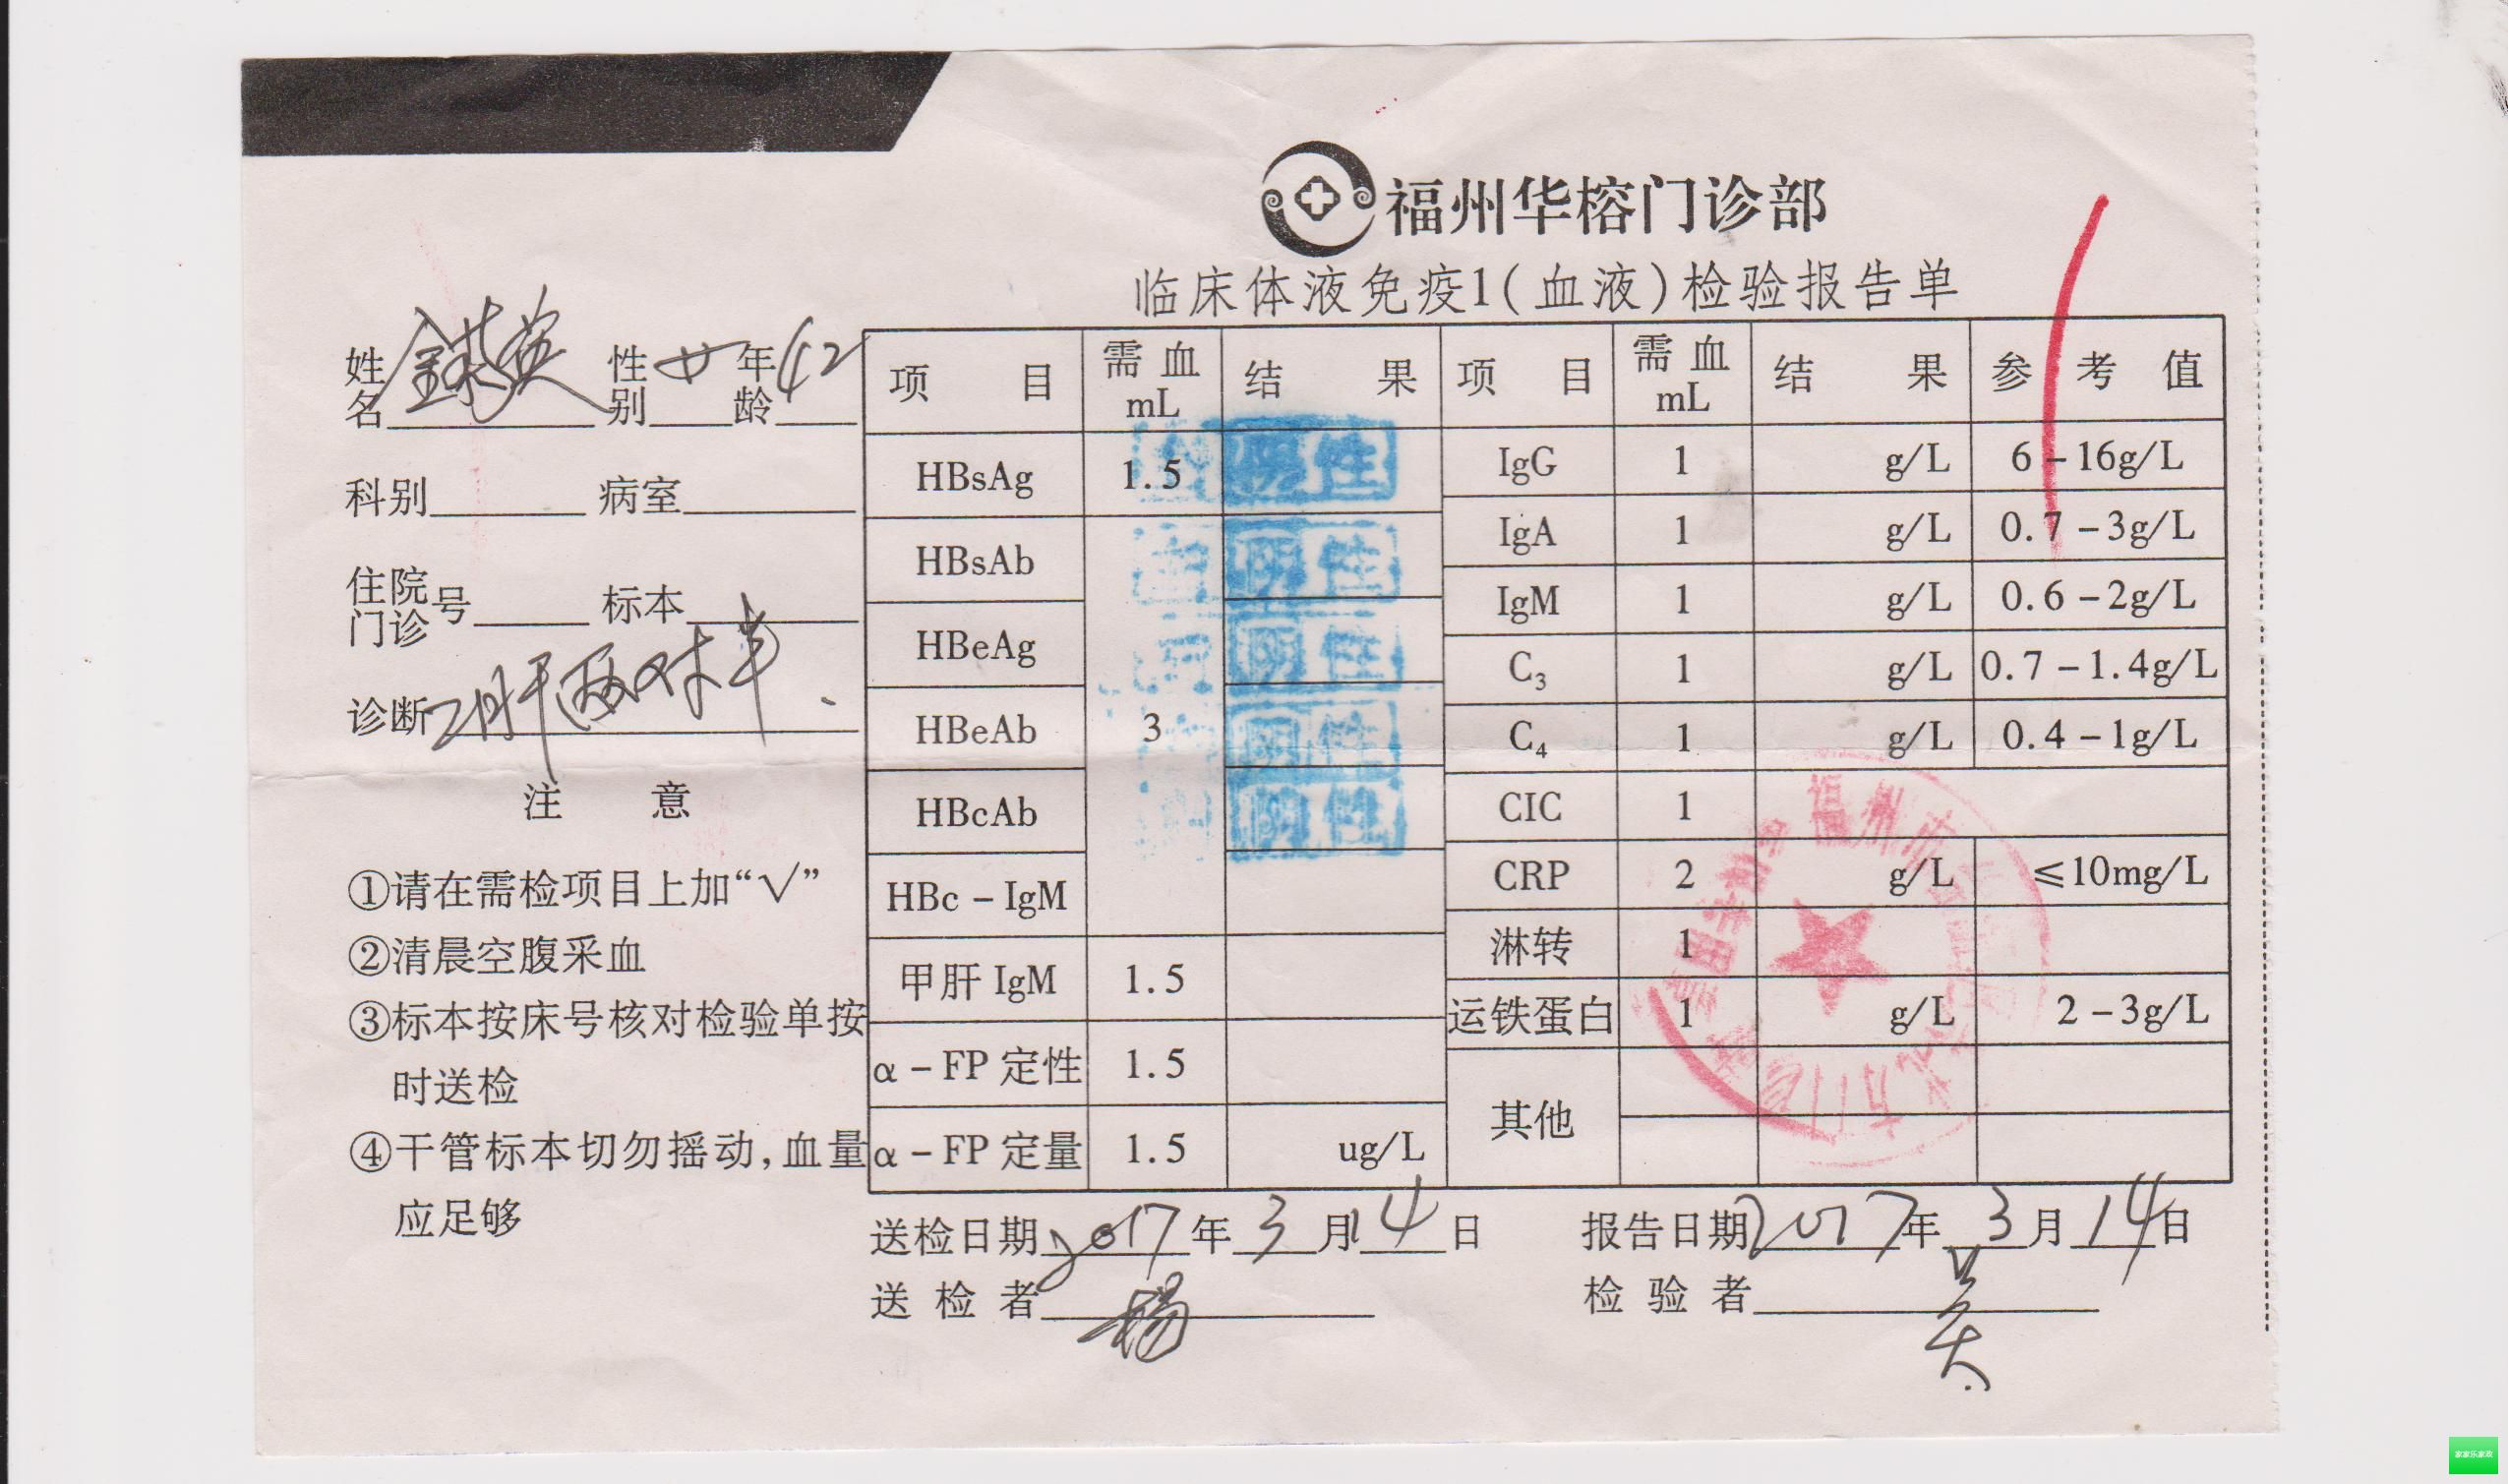 福州华榕门诊部
临床体液免疫1(血液)检验报告单
姓名 性别 女 年龄 42
科别 病室
住院门诊号 标本
诊断 乙肝两对半
注意
①请在需检项目上加“√”
②清晨空腹采血
③标本按床号核对检验单按
时送检
④干管标本切勿摇动,血量
应足够
项目 需血mL 结果 项目 需血mL 结果 参考值
HBsAg 1.5 阴性 IgG 1 g/L 6-16g/L
HBsAb 阴性 IgA 1 g/L 0.7-3g/L
HBeAg 阴性 IgM 1 g/L 0.6-2g/L
C3 1 g/L 0.7-1.4g/L
HBeAb 3 阴性 C4 1 g/L 0.4-1g/L
HBcAb 阴性 CIC 1
HBc-IgM CRP 2 g/L ≤10mg/L
甲肝 IgM 1.5 淋转 1
运铁蛋白 1 g/L 2-3g/L
α-FP 定性 1.5 其他
α-FP 定量 1.5 ug/L
送检日期 2017 年 3 月 14 日 报告日期 2017 年 3 月 14 日
送检者 杨 检验者